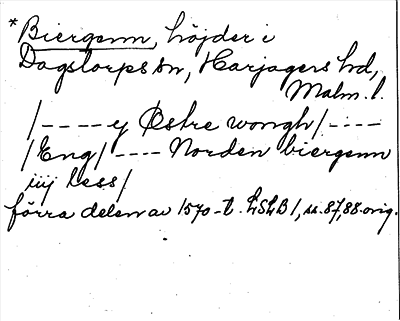 *Biergenn, höjder i
Dagstorps sn, Harjagers hd,
Malm. l.
/----y Østre wongh/----
/Eng/---- Norden biergenn
iiij less/
förra delen av 1570-t. LSLB 1, ss. 87, 88. orig.